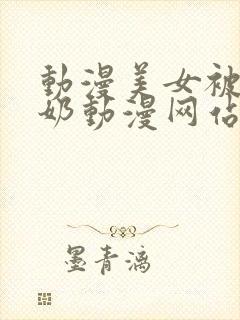 動漫美女被
奶動漫网佔
墨青漓